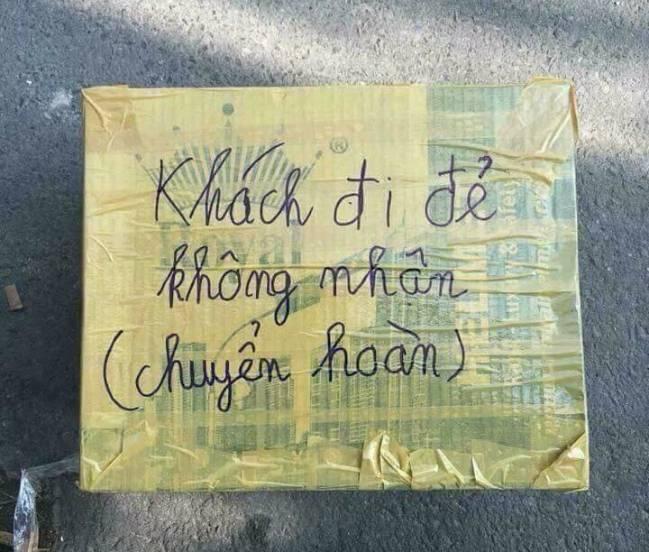 Khách đi đẻ
không nhận
(chuyển hoàn)